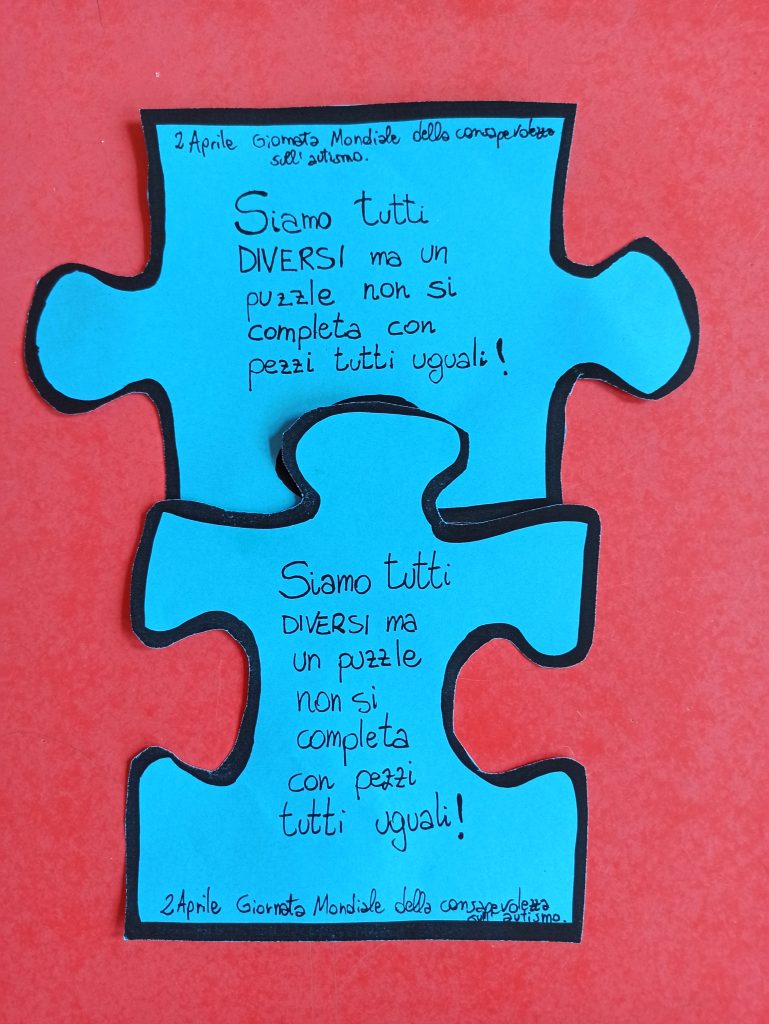 2 Aprile Giornata Mondiale della consapevolezza
sull' autismo.
Siamo tutti
DIVERSI ma un
puzzle non si
completa con
pezzi tutti uguali!
Siamo tutti
DIVERSI ma
un puzzle
non si
completa
con pezzi
tutti uguali!
2 Aprile Giornata Mondiale della consapevolezza
sull' autismo.